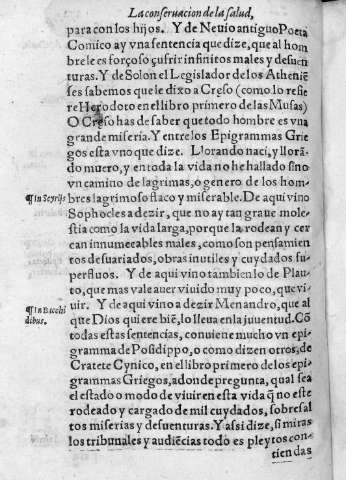 La conseruacion de la salud,
para con los hijos. Y de Neuio antiguo Poeta
Comico ay vna sentencia que dize, que al hom
bre le es forçoso çufrir infinitos males y desuen
turas. Y de Solon el Legislador de los Atheniẽ
ses sabemos que le dixo a Creso (como lo refie
re Herodoto en el libro primero de las Musas)
O Creso has de saber que todo hombre es vna
grande miseria. Y entre los Epigrammas Grie
gos esta vno que dize. Llorando naci, y llorã
do muero, y en toda la vida no he hallado sino
vn camino de lagrimas, o genero de los hom
¶ In Scyrijs
bres lagrimoso flaco y miserable. De aqui vino
Sophocles a dezir, que no ay tan graue moles
tia como la vida larga, porque la rodean y cer
can innumecables males, como son pensamien
tos desuariados, obras inutiles y cuydados su
perfluos. Y de aqui vino tambien lo de Plau
to, que mas vale auer viuido muy poco, que vi
¶ In Bacchi
dibus.
uir. Y de aqui vino a dezir Menandro, que al
que Dios quiere biẽ, lo lleua en la juuentud. Cõ
todas estas sentencias, conuiene mucho vn epi
gramma de Posidippo, o como dizen otros, de
Cratete Cynico, en el libro primero de los epi
grammas Griegos, adonde pregunta, qual sea
el estado o modo de viuir en esta vida q̃ no este
rodeado y cargado de mil cuydados, sobresal
tos miserias y desuenturas. Y assi dize, si miras
los tribunales y audiẽcias todo es pleytos con-
tiendas